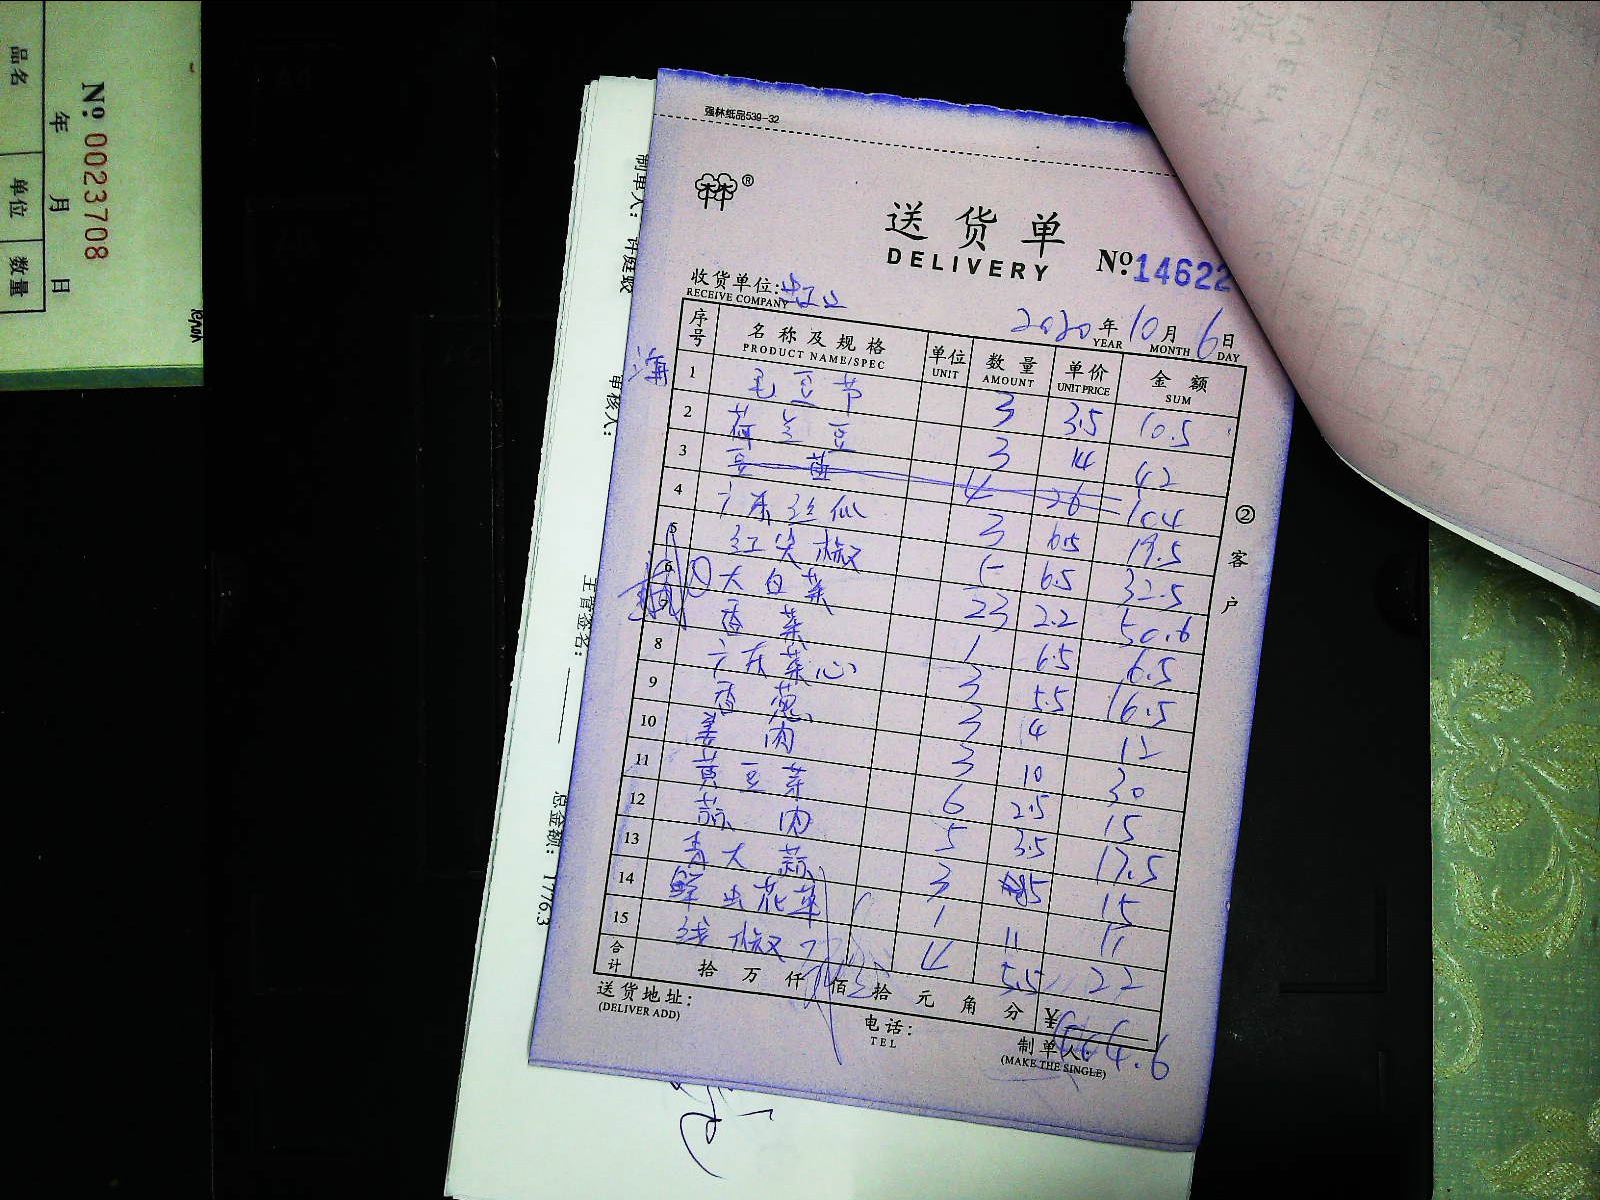 品名 单位 数量
年 月 日
№ 0023708
制单人: 许庭
审核人:
主管签名:
总金额: 1776.3
强林纸品539-32
®
送货单
DELIVERY
№14622
收货单位:
RECEIVE COMPANY
2020年10月6日
YEAR MONTH DAY
序号 名称及规格 单位 数量 单价 金额
PRODUCT NAME/SPEC UNIT AMOUNT UNIT PRICE SUM
1 毛豆节 3 3.5 10.5
2 荷兰豆 3 14 42
3 豆苗 4 26 104
4 广东丝仙 3 6.5 19.5
5 红尖椒 5 6.5 32.5
6 大白菜 23 2.2 50.6
香菜 1 6.5 6.5
8 广东菜心 3 5.5 16.5
9 香葱 3 4 12
10 姜肉 3 10 30
11 黄豆芽 6 2.5 15
12 蒜肉 5 3.5 17.5
13 青大蒜 3 5 15
14 鲜虫花草 1 11 11
15 线椒 4 5.5 22
合计 拾 万 仟 佰 拾 元 角 分 ¥
送货地址:
(DELIVER ADD)
电话:
TEL
制单人:
(MAKE THE SINGLE)
②客户